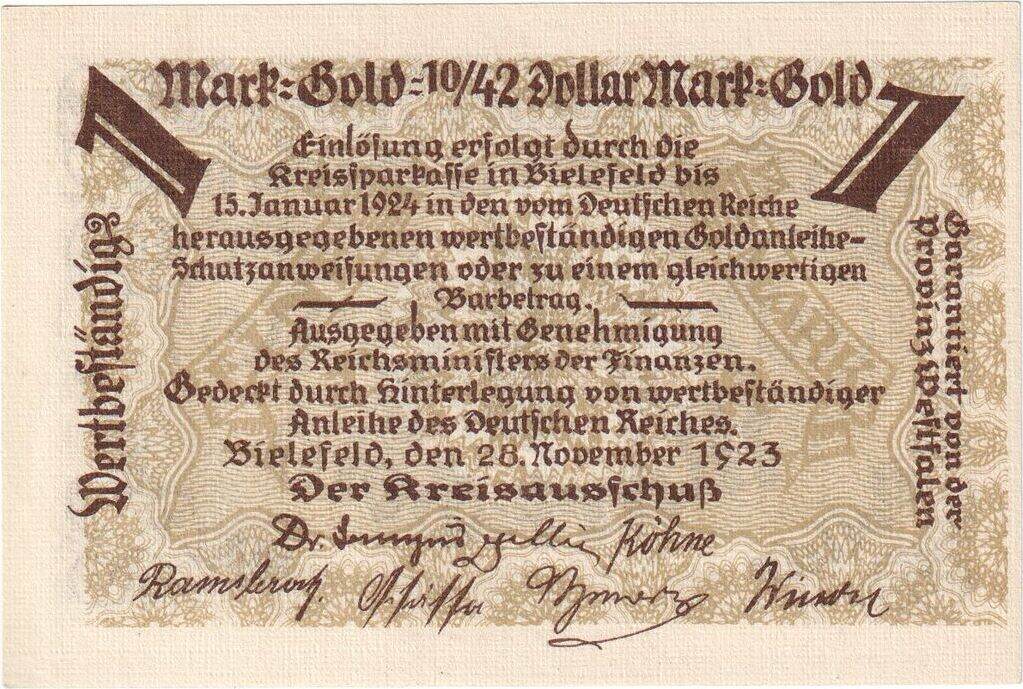 1 Mark=Gold=10/42 Dollar Mark=Gold 1
Einlösung erfolgt durch die
Kreissparkasse in Bielefeld bis
15. Januar 1924 in den vom Deutschen Reiche
herausgegebenen wertbeständigen Goldanleihe-
Schatzanweisungen oder zu einem gleichwertigen
Barbetrag.
Ausgegeben mit Genehmigung
des Reichsministers der Finanzen.
Gedeckt durch Hinterlegung von wertbeständiger
Anleihe des Deutschen Reiches.
Bielefeld, den 28. November 1923
Der Kreisausschuß
Dr. Köhne
Wertbeständig
Garantiert von der
Provinz Westfalen